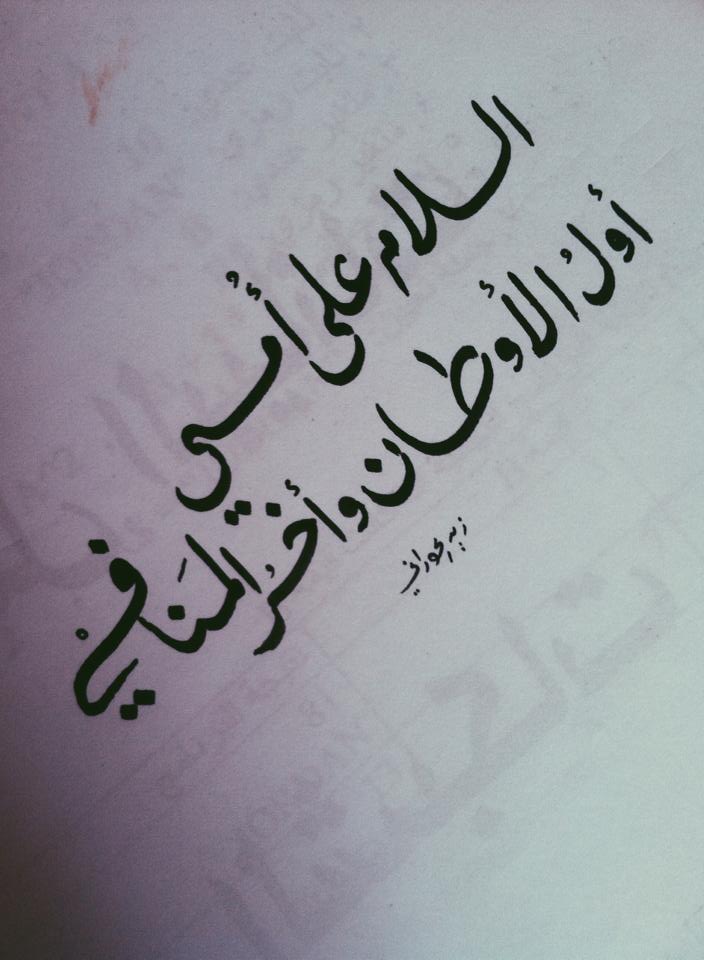 السلام على أُمي
أولُ الأوطان وأخرُ المنَافيْ
زيد الحوراني